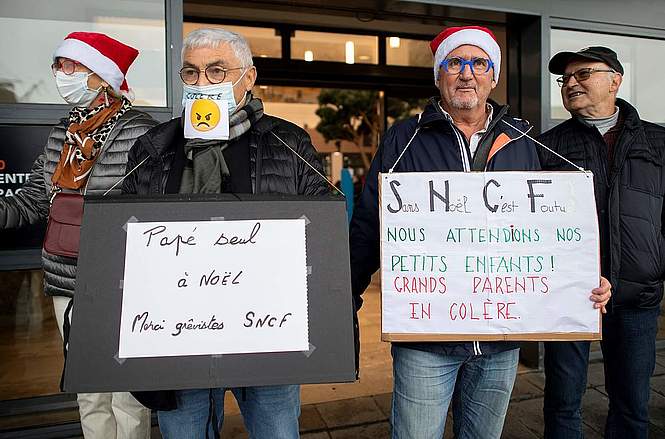 COLÈRE
Papé seul
à NOËL
Merci grévistes SNCF
Sans Noël C'est Foutu
NOUS ATTENDIONS NOS
PETITS ENFANTS!
GRANDS PARENTS
EN COLÈRE.